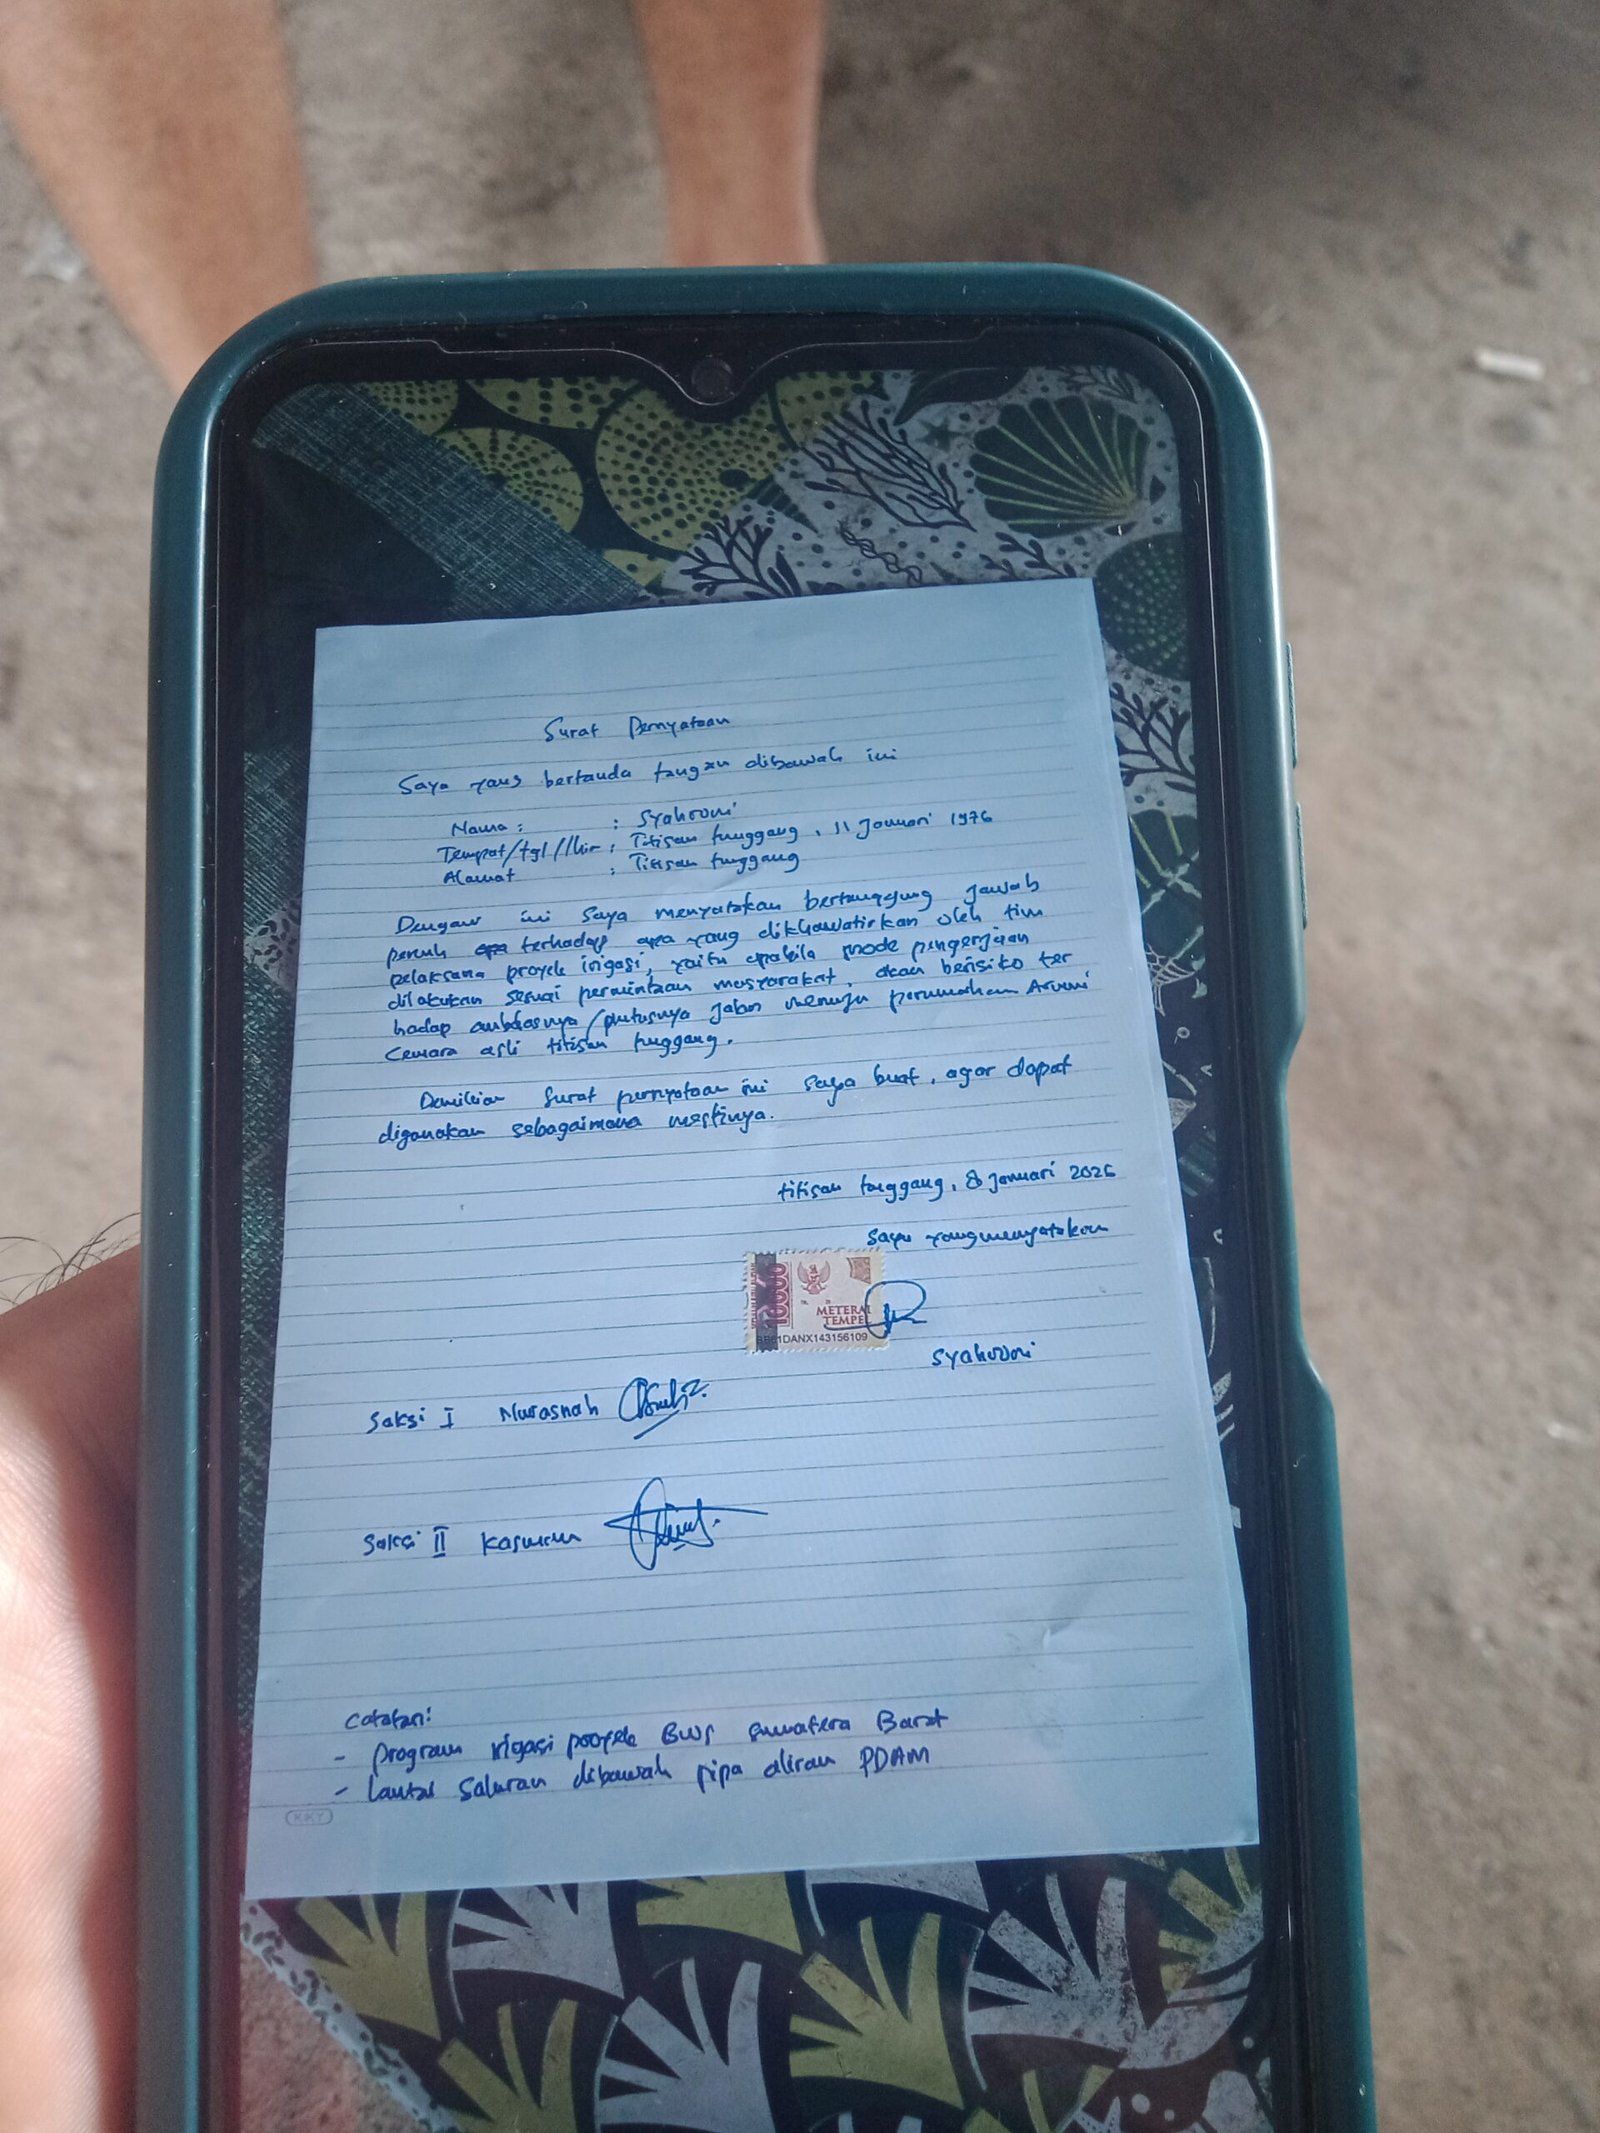 Surat Pernyataan
Saya yang bertanda tangan dibawah ini
Nama : : Syahroni
Tempat/tgl/lhir : Titisan tunggang, 11 Januari 1976
Alamat : Titisan tunggang
Dengan ini saya menyatakan bertanggung jawab
penuh terhadap apa yang dikhawatirkan oleh tim
pelaksana proyek irigasi, yaitu apabila mode pengerjaan
dilakukan sesuai permintaan masyarakat, akan berisiko ter
hadap amblasnya/putusnya jalan menuju perumahan Arumi
Cemara asli titisan tunggang.
Demikian surat pernyataan ini saya buat, agar dapat
digunakan sebagaimana mestinya.
titisan tunggang, 8 Januari 2026
Saya yang menyatakan
10000
METERAI
TEMPEL
DANX143156109
Syahroni
Saksi I Nurasnah
Saksi II Kasmun
Catatan:
- program irigasi proyek BWS Sumatera Barat
- Lantai saluran dibawah pipa aliran PDAM
KIKY